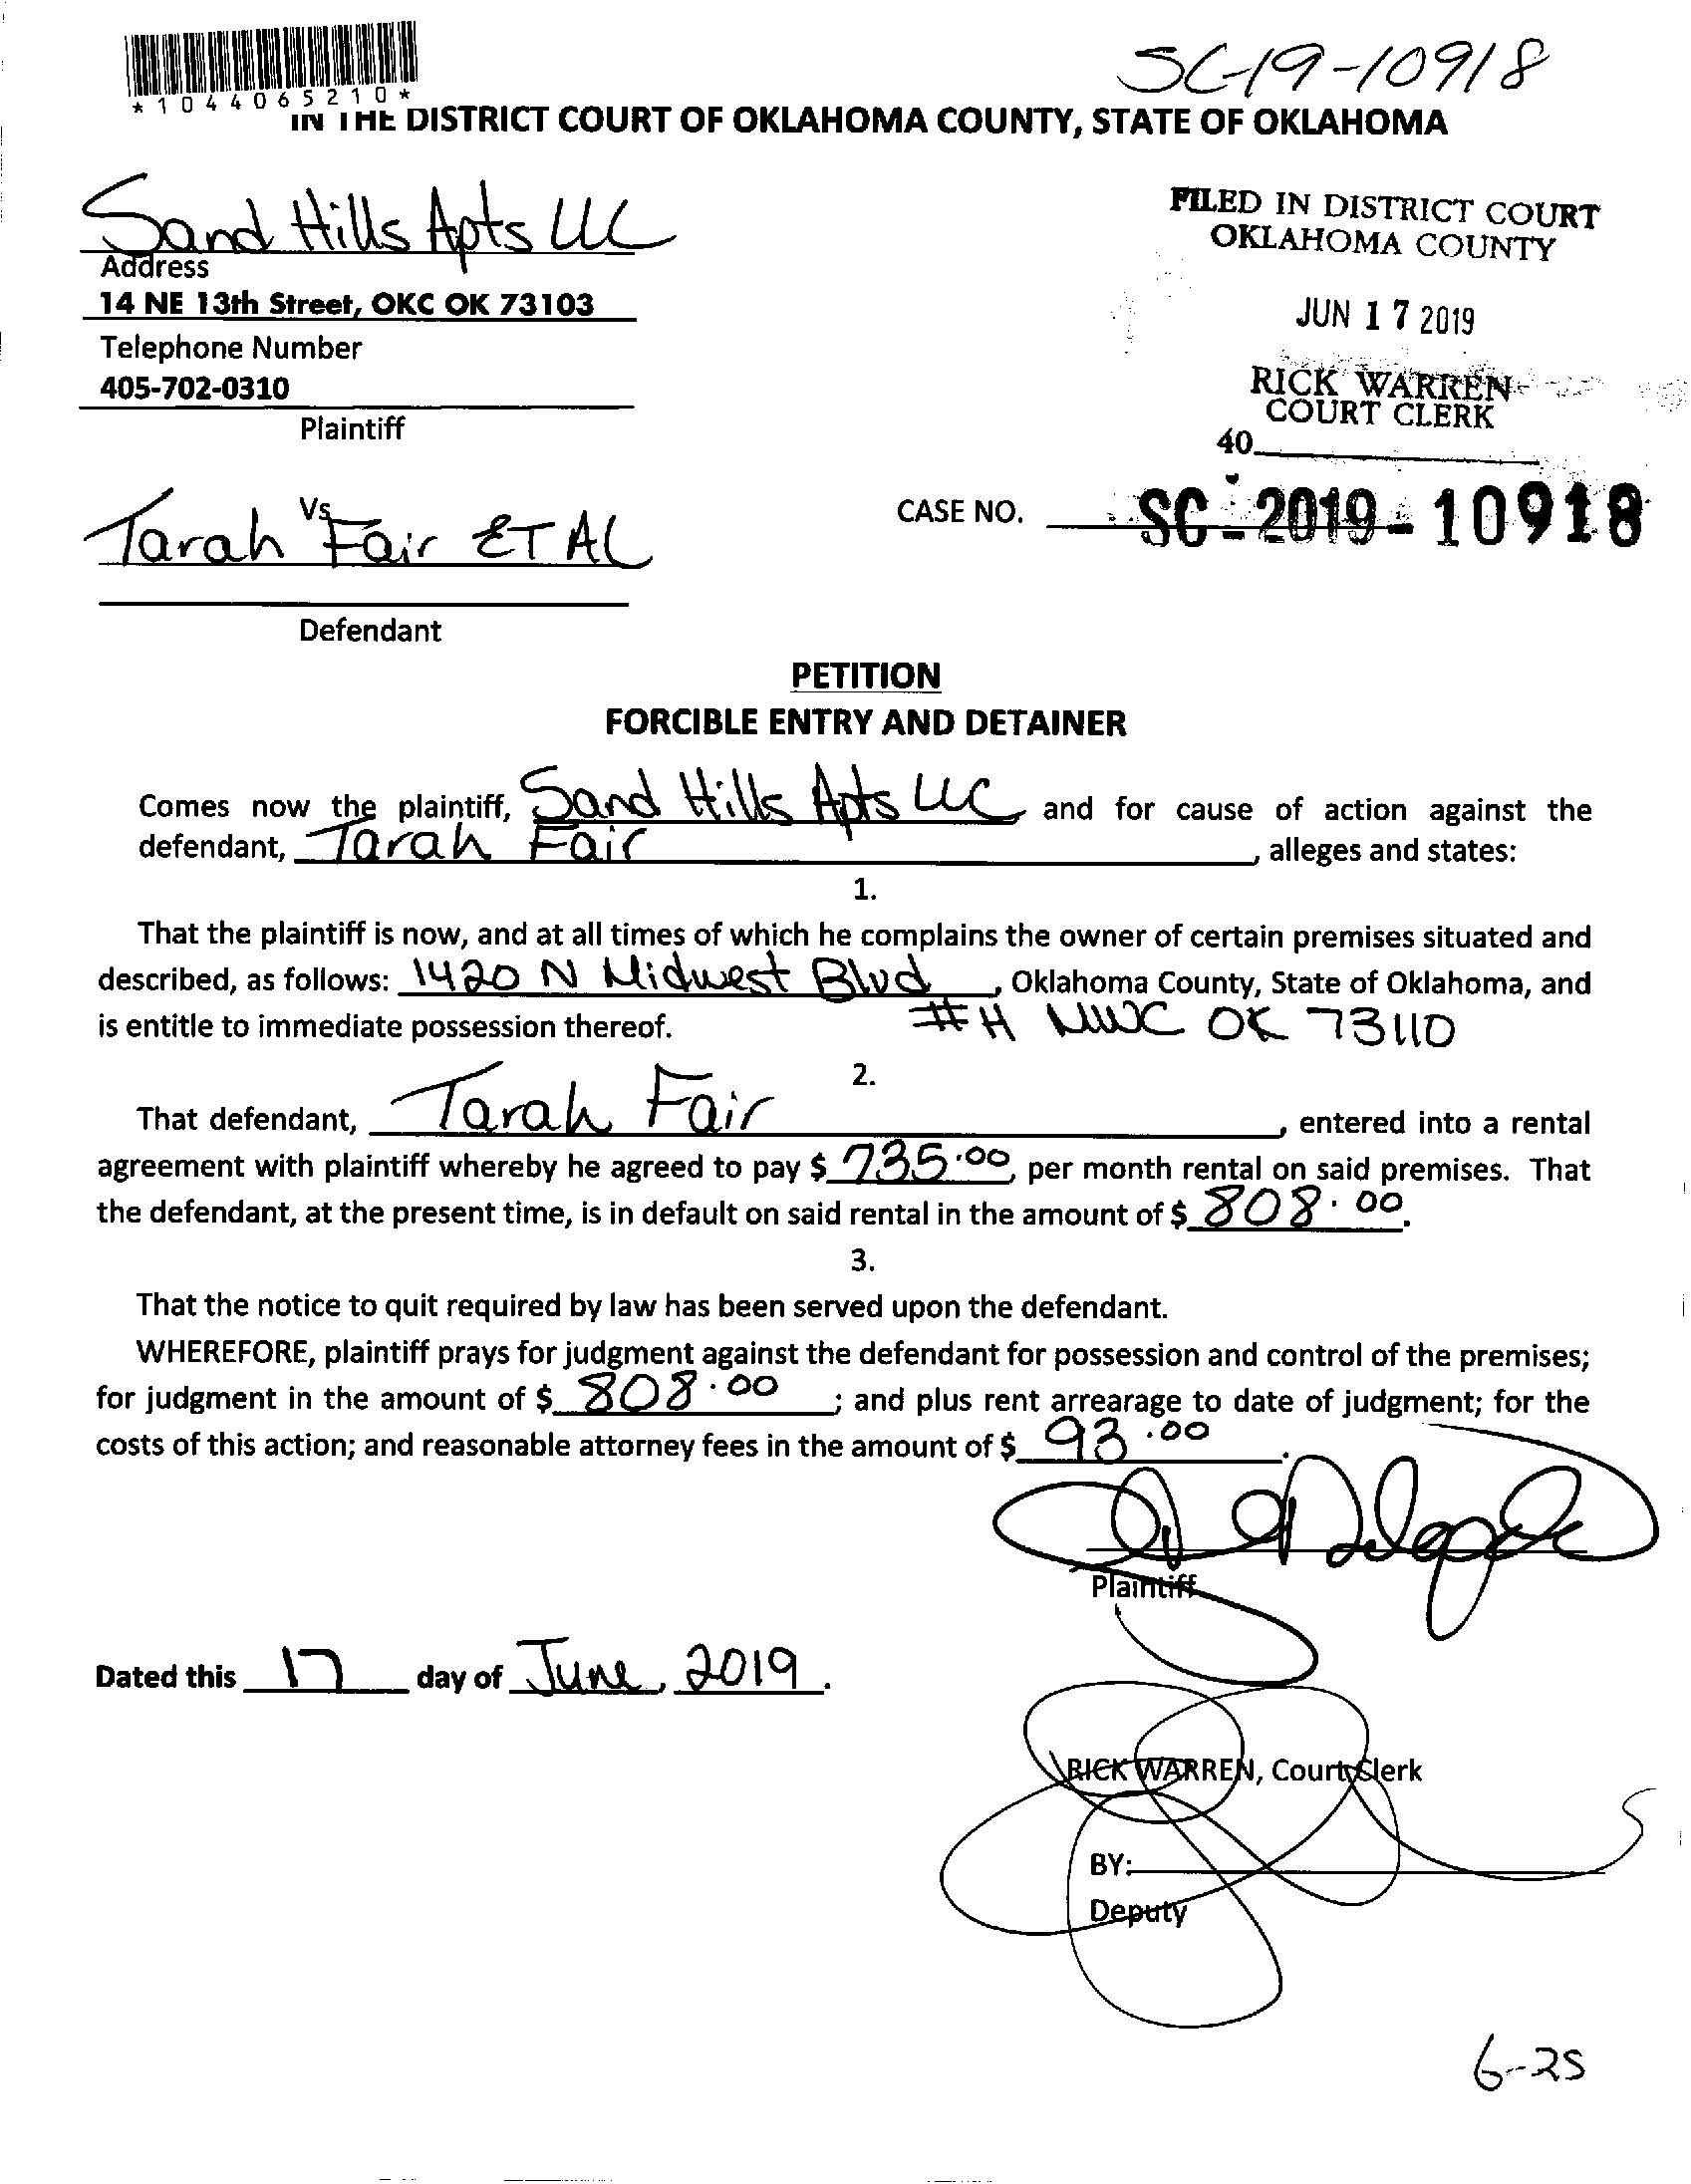 SC-19-10918
*1044065210*
IN THE DISTRICT COURT OF OKLAHOMA COUNTY, STATE OF OKLAHOMA
Sand Hills Apts LLC
Address
14 NE 13th Street, OKC OK 73103
Telephone Number
405-702-0310
Plaintiff
FILED IN DISTRICT COURT
OKLAHOMA COUNTY
JUN 17 2019
RICK WARREN
COURT CLERK
40
Vs
Tarah Fair ET AL
Defendant
CASE NO. SC-2019-10918
PETITION
FORCIBLE ENTRY AND DETAINER
Comes now the plaintiff, Sand Hills Apts LLC and for cause of action against the
defendant, Tarah Fair, alleges and states:
1.
That the plaintiff is now, and at all times of which he complains the owner of certain premises situated and
described, as follows: 1420 N Midwest Blvd, Oklahoma County, State of Oklahoma, and
is entitle to immediate possession thereof. #H MWC OK 73110
2.
That defendant, Tarah Fair, entered into a rental
agreement with plaintiff whereby he agreed to pay $ 735.00, per month rental on said premises. That
the defendant, at the present time, is in default on said rental in the amount of $ 808.00.
3.
That the notice to quit required by law has been served upon the defendant.
WHEREFORE, plaintiff prays for judgment against the defendant for possession and control of the premises;
for judgment in the amount of $ 808.00; and plus rent arrearage to date of judgment; for the
costs of this action; and reasonable attorney fees in the amount of $ 93.00.
Plaintiff
Dated this 17 day of June, 2019.
RICK WARREN, Court Clerk
BY:
Deputy
6-25